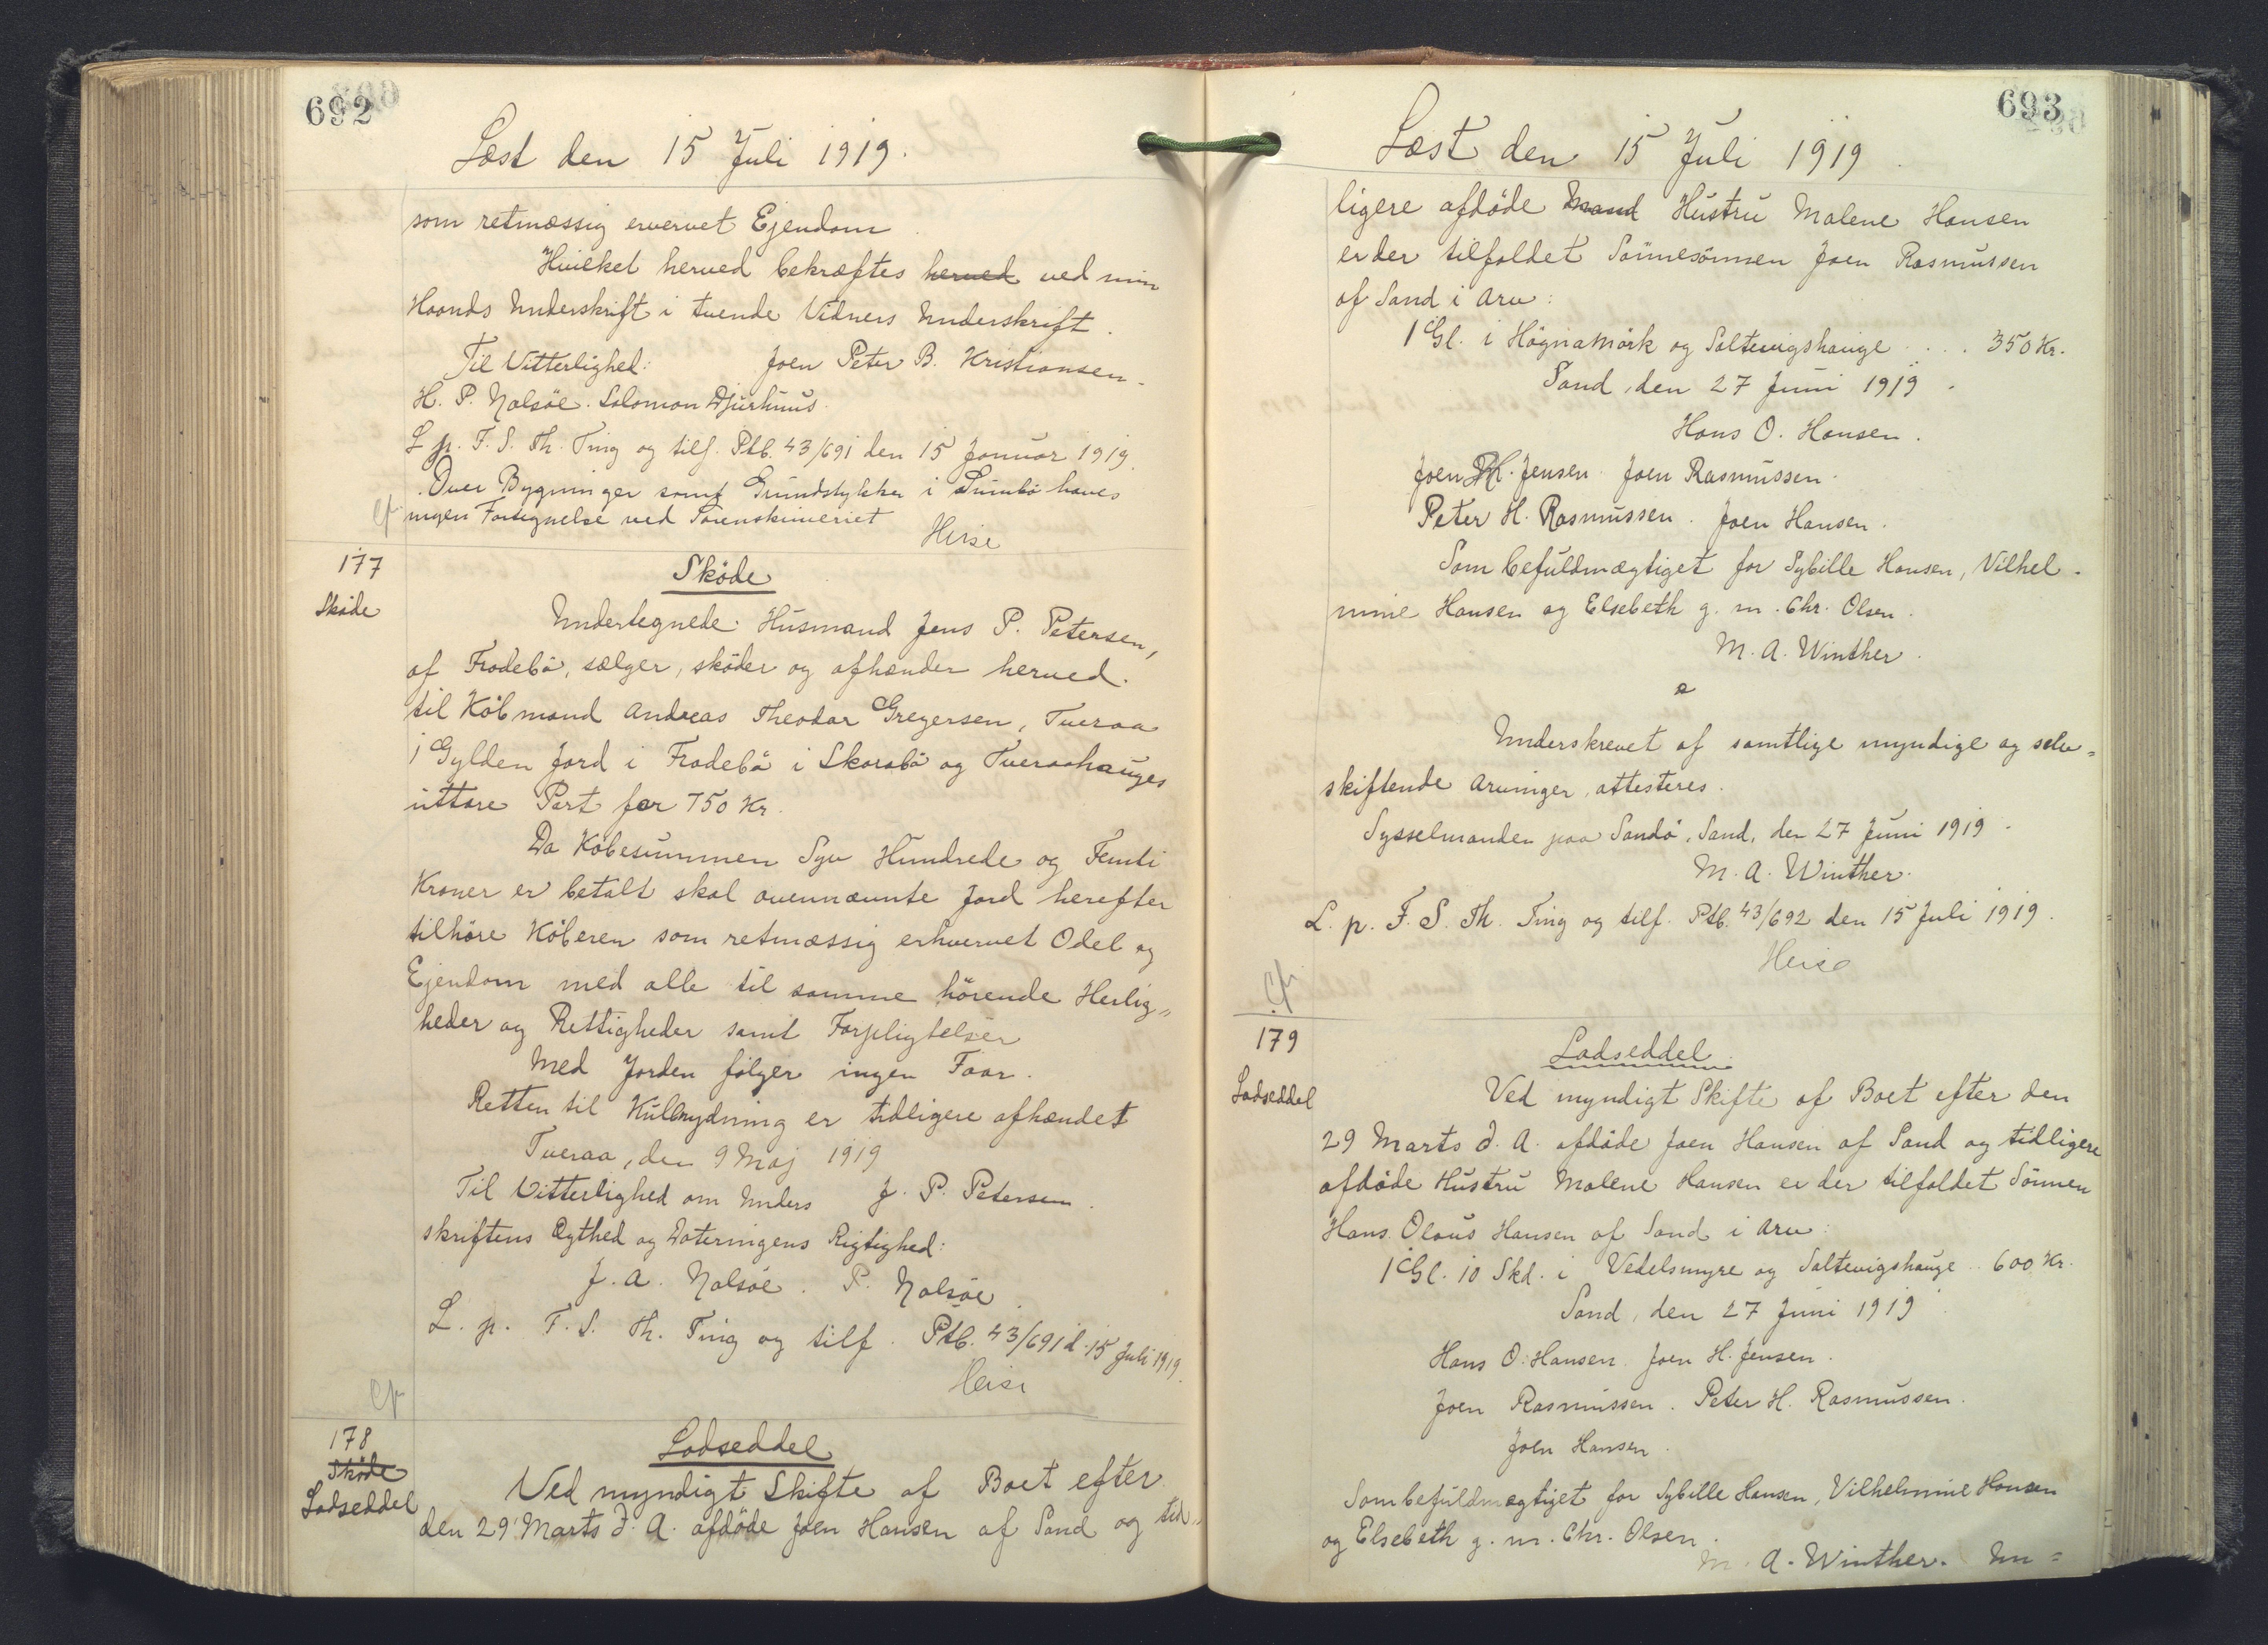 692
Læst den 15 Juli 1919.
som retmæssig ervervet Ejendom
Hvilket herved bekræftes herved ved min
Haands Underskrift i tvende Vidners Underskrift.
Til Vitterlighed: Joen Peter B. Kristiansen.
H. P. Nolsöe. Solomon Djurhuus.
L. p. F. S. Th. Ting og tilf. Ptb. 43/691 den 15 Januar 1919.
Over Bygninger samt Grundstykker i Sumbö haves
cfr ingen Fortegnelse ved Sorenskriveriet
Heise
177
Sköde
Sköde
Undertegnede Husmand Jens P. Petersen,
af Frodebö, sælger, sköder og afhænder herved
til Köbmand Andreas Theodor Gregersen, Tveraa
1 Gylden Jord i Frodebö i Skarabö og Tveraahauges
uttare Part for 750 Kr.
Da Köbesummen Syv Hundrede og Femti
Kroner er betalt skal ovennævnte Jord herefter
tilhöre Köberen som retmæssig erhvervet Odel og
Ejendom med alle til samme hörende Herlig„
heder og Rettigheder samt Forpligtelser
Med Jorden fölger ingen Faar.
Retten til Kulbrydning er tidligere afhændet
Tveraa, den 9 Maj 1919
Til Vitterlighed om Unders J. P. Petersen.
skriftens Ægthed og Dateringens Rigtighed:
J. A. Nolsöe. P. Nolsöe
L. p. F. S. Th. Ting og tilf. Ptb. 43/691 d. 15 Juli 1919.
Heise
cfr
178
Sköde
Lodseddel
Lodseddel
Ved myndigt Skifte af Boet efter
den 29' Marts d. A. afdöde Joen Hansen af Sand og tid„
693
Læst den 15 Juli 1919.
ligere afdöde Mand Hustru Malene Hansen
er der tilfaldet Sönnesönnen Joen Rasmussen
af Sand i Arv:
1 Gl. i Högnamörk og Saltevigshauge .... 350 Kr.
Sand, den 27 Juni 1919.
Hans O. Hansen.
Joen H. Jensen. Joen Rasmussen.
Peter H. Rasmussen. Joen Hansen.
Som befuldmægtiget for Sybille Hansen, Vilhel-
mine Hansen og Elsebeth g. m. Chr. Olsen.
M. A. Winther.
Underskrevet af samtlige myndige og selv=
skiftende Arvinger, attesteres.
Sysselmanden paa Sandö, Sand, den 27 Juni 1919.
M. A. Winther.
L. p. F. S. Th. Ting og tilf. Ptb. 43/692 den 15 Juli 1919.
Heise
cfr
179
Lodseddel
Lodseddel.
Ved myndigt Skifte af Boet efter den
29 Marts d. A. afdöde Joen Hansen af Sand og tidligere
afdöde Hustru Malene Hansen er der tilfaldet Sönnen
Hans Olaus Hansen af Sand i Arv:
1 Gl. 10 Skd. i Vedelsmyre og Saltevigshauge .. 600 Kr.
Sand, den 27 Juni 1919
Hans O. Hansen. Joen H. Jensen.
Joen Rasmussen. Peter H. Rasmussen.
Joen Hansen.
Som befuldmægtiget for Sybille Hansen, Vilhelmine Hansen
og Elsebeth g. m. Chr. Olsen.
M. A. Winther. Un=